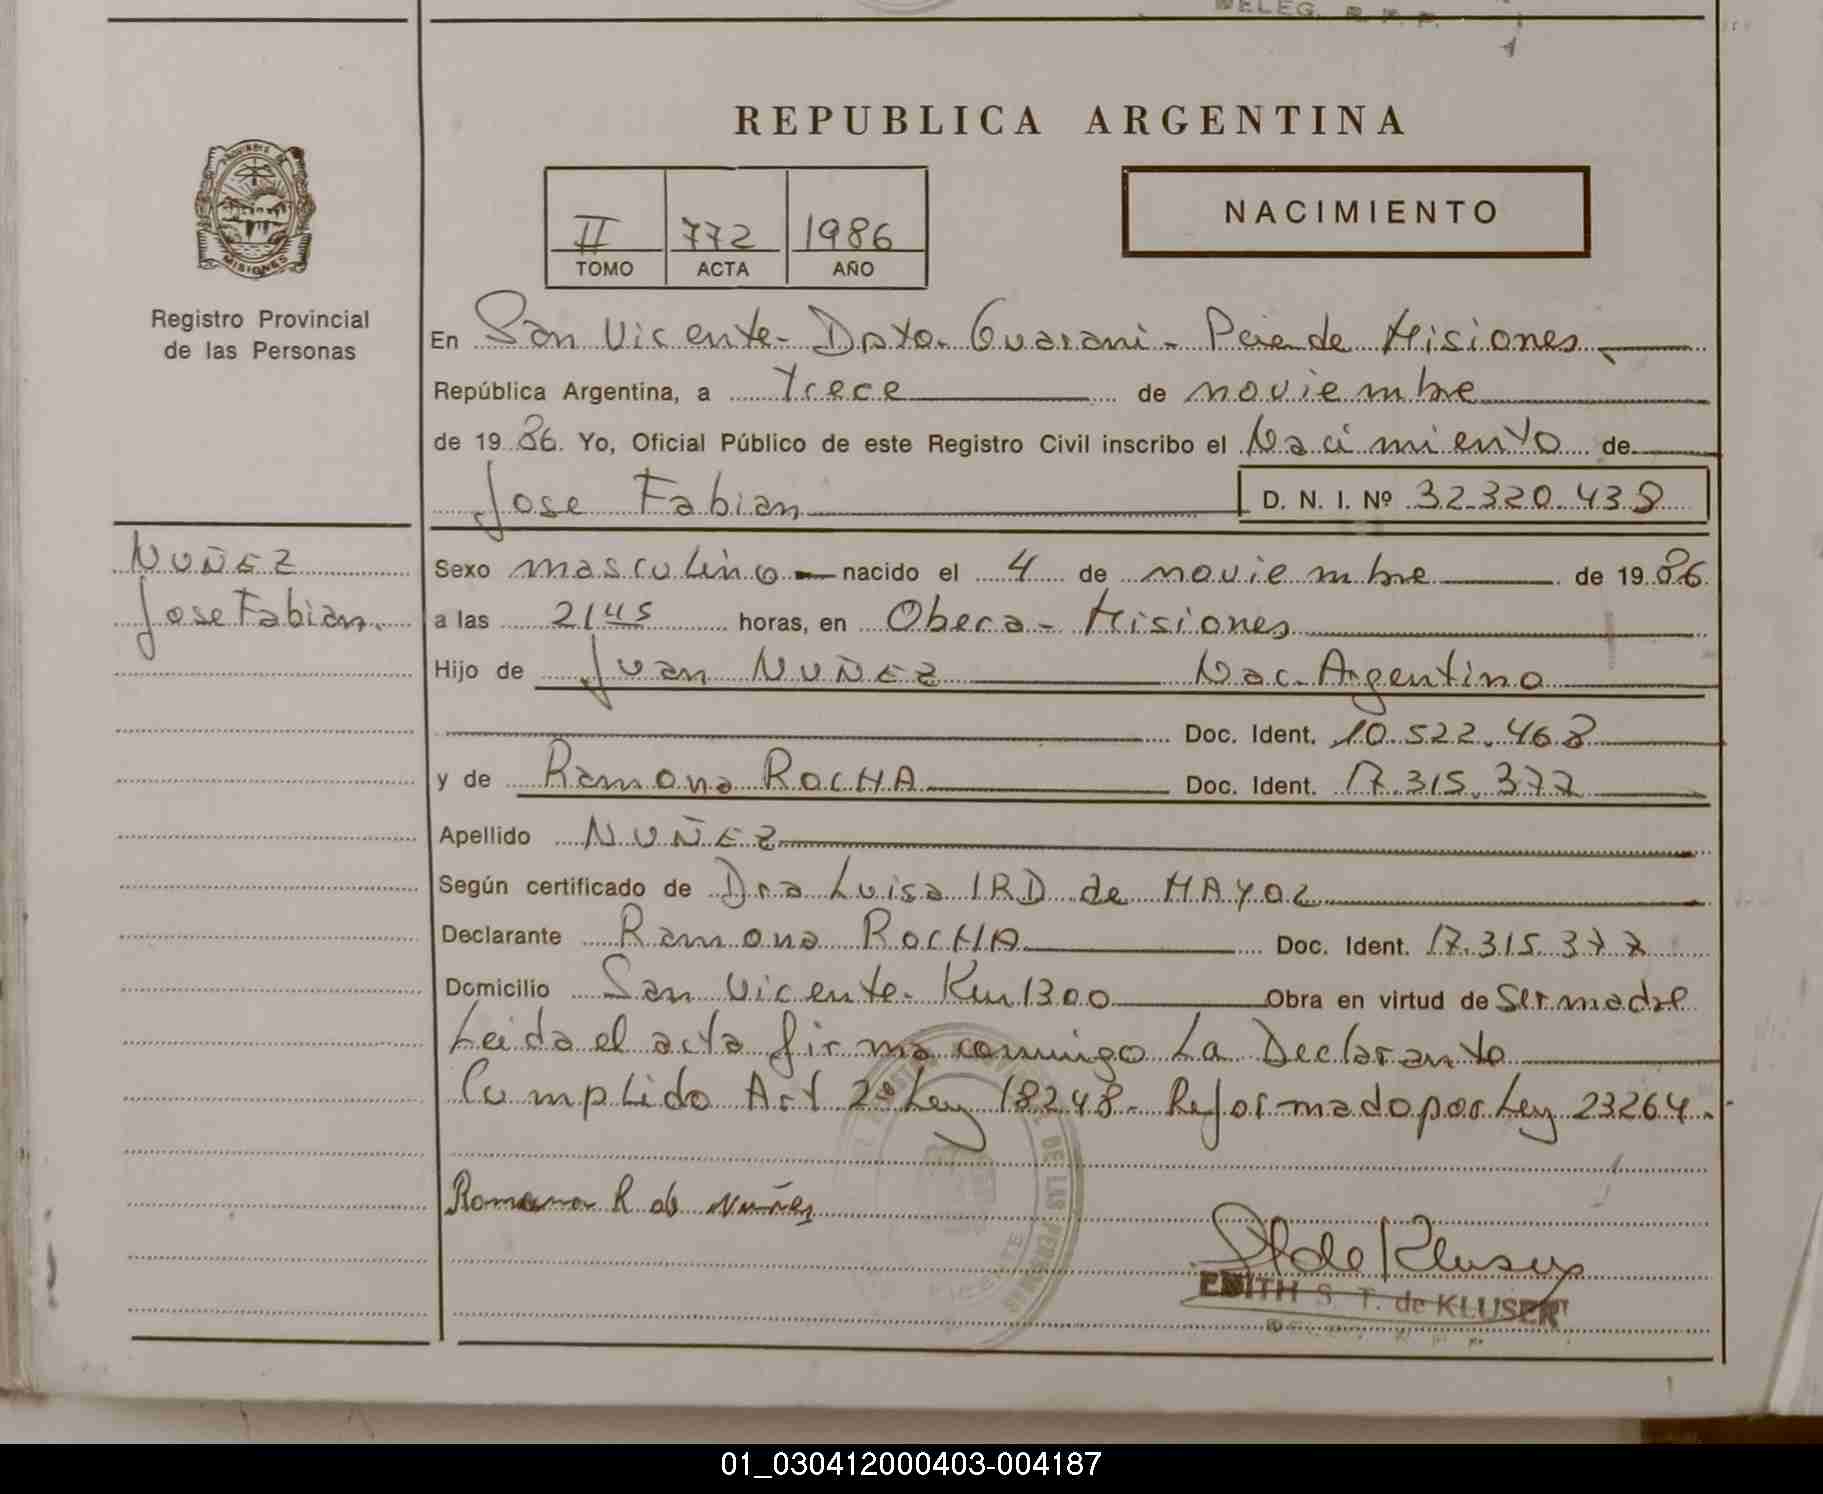 DELEG. R. P. P.
REPUBLICA ARGENTINA
PROVINCIA DE
MISIONES
Registro Provincial
de las Personas
II 772 1986
TOMO ACTA AÑO
NACIMIENTO
En San Vicente - Dpto. Guarani - Pcia de Misiones
República Argentina, a Trece de noviembre
de 19 86. Yo, Oficial Público de este Registro Civil inscribo el Nacimiento de
Jose Fabian D. N. I. Nº 32.320.438
NUÑEZ
Jose Fabian.
Sexo masculino nacido el 4 de noviembre de 19 86
a las 21 45 horas, en Obera - Misiones
Hijo de Juan NUÑEZ Nac. Argentino
Doc. Ident. 10.522.468
y de Ramona ROCHA Doc. Ident. 17.315.377
Apellido NUÑEZ
Según certificado de Dra Luisa IRD de MAYOL
Declarante Ramona ROCHA Doc. Ident. 17.315.377
Domicilio San Vicente - Km 1300 Obra en virtud de Ser madre
Leida el acta firma conmigo La Declarante
Cumplido Art 2º Ley 18248 - Reformado por Ley 23264.-
DE LAS PERSONAS
VICENTE
Ramona R de Nuñes
ST de Kluser
EDITH S. T. de KLUSER
01_030412000403-004187